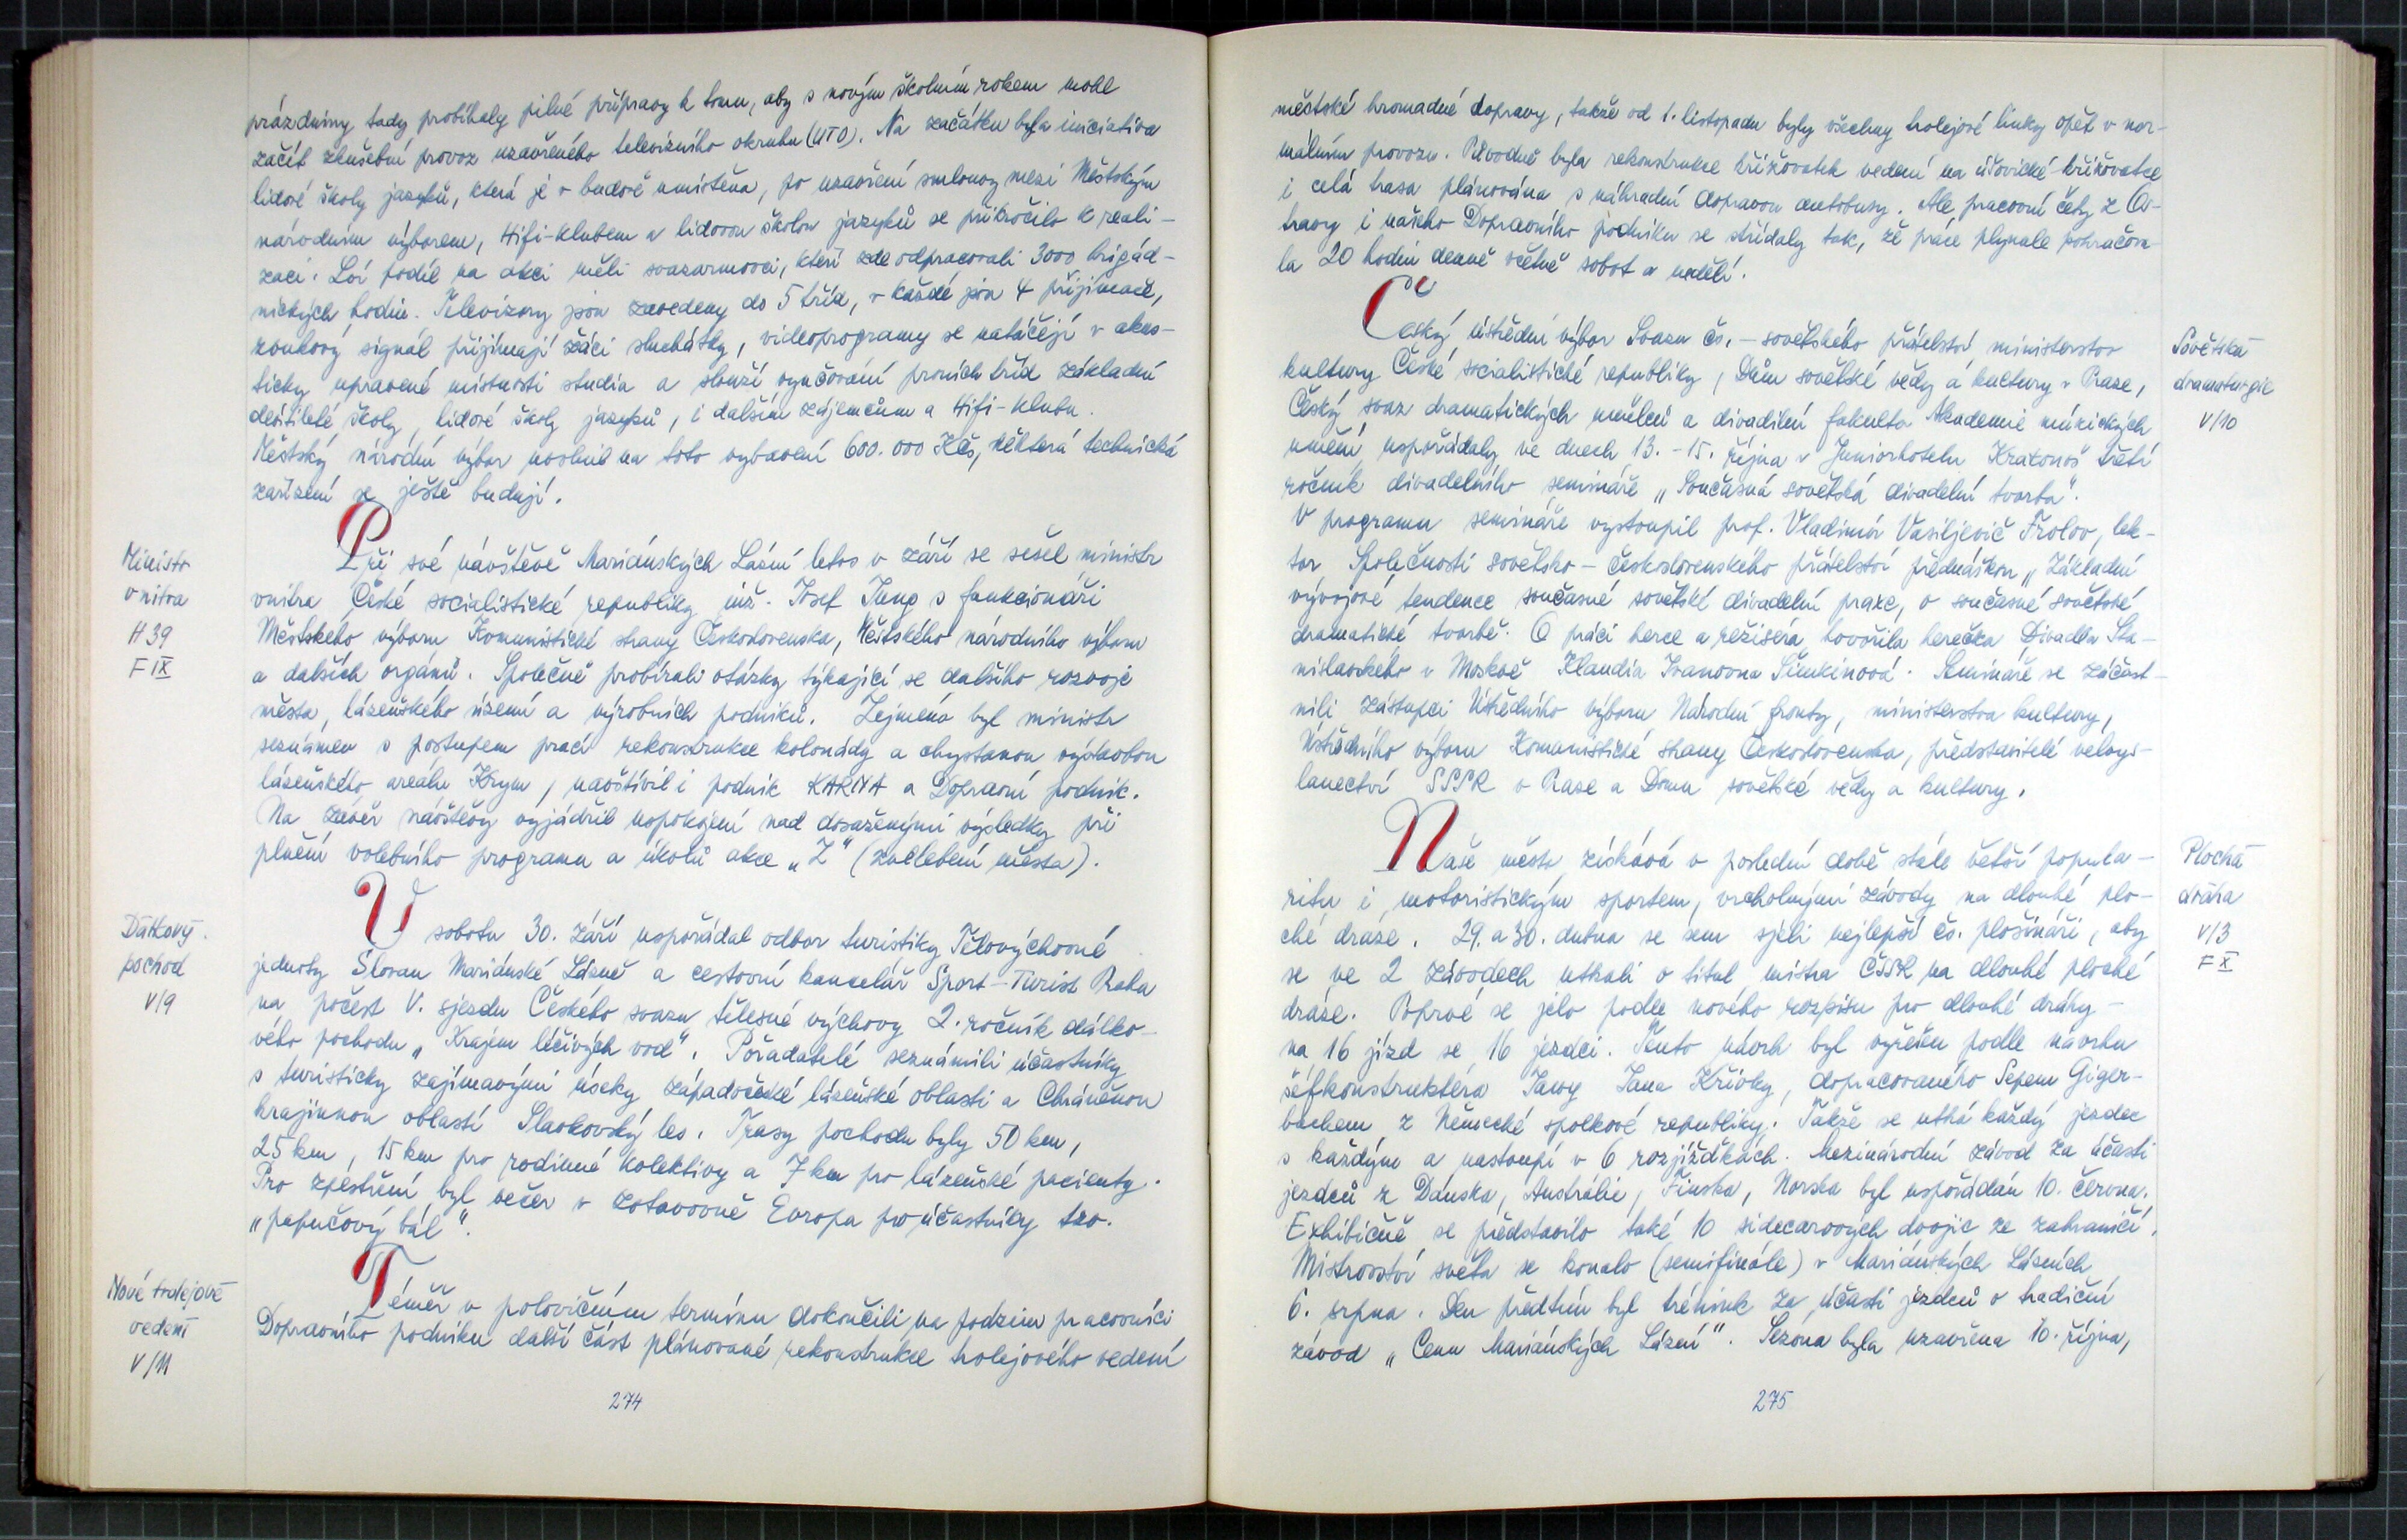 prázdniny tady probíhaly pilné přípravy k tomu, aby s novým školním rokem mohl
začít zkušební provoz uzavřeného televizního okruhu (UTO). Na začátku byla iniciativa
lidové školy jazyků, která je v budově umístěna, po uzavření smlouvy mezi Městským
národním výborem, Hifi-klubem a lidovou školou jazyků se přikročilo k reali-
zaci. Lví podíl na akci měli svazarmovci, kteří zde odpracovali 3000 brigád-
nických hodin. Televizory jsou zavedeny do 5 tříd, v každé jsou 4 přijímače,
zvukový signál přijímají žáci sluchátky, videoprogramy se natáčejí v akus-
ticky upravené místnosti studia a slouží vyučování prvních tříd základní
devítileté školy, lidové školy jazyků, i dalším zájemcům a Hifi-klubu.
Městský národní výbor uvolnil na toto vybavení 600.000 Kčs, některá technická
zařízení se ještě budují.
Ministr
vnitra
H 39
F IX
Při své návštěvě Mariánských Lázní letos v září se sešel ministr
vnitra České socialistické republiky inž. Josef Jung s funkcionáři
Městského výboru Komunistické strany Československa, Městského národního výboru
a dalších orgánů. Společně probírali otázky týkající se dalšího rozvoje
města, lázeňského území a výrobních podniků. Zejména byl ministr
seznámen s postupem prací rekonstrukce kolonády a chystanou výstavbou
lázeňského areálu Krym, navštívil i podnik KARNA a Dopravní podnik.
Na závěr návštěvy vyjádřil uspokojení nad dosaženými výsledky při
plnění volebního programu a úkolů akce „Z" (zvelebení města).
Dálkový
pochod
V/9
V sobotu 30. září uspořádal odbor turistiky Tělovýchovné
jednoty Slovan Mariánské Lázně a cestovní kancelář Sport-Turist Praha
na počest V. sjezdu Českého svazu tělesné výchovy 2. ročník dálko-
vého pochodu „Krajem léčivých vod". Pořadatelé seznámili účastníky
s turisticky zajímavými úseky západočeské lázeňské oblasti a Chráněnou
krajinnou oblastí Slavkovský les. Trasy pochodu byly 50 km,
25 km, 15 km pro rodinné kolektivy a 7 km pro lázeňské pacienty.
Pro zpestření byl večer v zotavovně Evropa pro účastníky tzv.
„papučový bál".
Nové trolejové
vedení
V/11
Téměř v polovičním termínu dokončili na podzim pracovníci
Dopravního podniku další část plánované rekonstrukce trolejového vedení
274
městské hromadné dopravy, takže od 1. listopadu byly všechny trolejové linky opět v nor-
málním provozu. Původně byla rekonstrukce křižovatek vedení na úšovické křižovatce
i celá trasa plánována s náhradní dopravou autobusy. Ale pracovní čety z Os-
travy i našeho Dopravního podniku se střídaly tak, že práce plynule pokračova-
la 20 hodin denně včetně sobot a nedělí.
Sovětská
dramaturgie
V/10
Český ústřední výbor Svazu čs.-sovětského přátelství ministerstvo
kultury České socialistické republiky, Dům sovětské vědy a kultury v Praze,
Český svaz dramatických umělců a divadelní fakulta Akademie múzických
umění uspořádaly ve dnech 13.-15. října v Juniorhotelu Krakonoš třetí
ročník divadelního semináře „Současná sovětská divadelní tvorba".
V programu semináře vystoupil prof. Vladimír Vasiljevič Frolov, lek-
tor Společnosti sovětsko-československého přátelství přednáškou „Základní
vývojové tendence současné sovětské divadelní praxe, o současné sovětské
dramatické tvorbě. O práci herce a režiséra hovořila herečka Divadla Sta-
nislavského v Moskvě Klaudia Ivanovna Šinkinová. Semináře se zúčast-
nili zástupci Ústředního výboru Národní fronty, ministerstva kultury,
Ústředního výboru Komunistické strany Československa, představitelé velvys-
lanectví SSSR v Praze a Domu sovětské vědy a kultury.
Plochá
dráha
V/3
F X
Naše město získává v poslední době stále větší popula-
ritu i motoristickým sportem, vrcholnými závody na dlouhé plo-
ché dráze. 29. a 30. dubna se sem sjeli nejlepší čs. plošináři, aby
se ve 2 závodech utkali o titul mistra ČSSR na dlouhé ploché
dráze. Poprvé se jelo podle nového rozpisu pro dlouhé dráhy -
na 16 jízd se 16 jezdci. Tento návrh byl vyřešen podle návrhu
šéfkonstruktéra Jawy Jana Křivky, dopracovaného Sepem Giger-
bachem z Německé spolkové republiky. Takže se utká každý jezdec
s každým a nastoupí v 6 rozjížďkách. Mezinárodní závod za účasti
jezdců z Dánska, Austrálie, Finska, Norska byl uspořádán 10. června.
Exhibičně se představilo také 10 sidecarových dvojic ze zahraničí.
Mistrovství světa se konalo (semifinále) v Mariánských Lázních
6. srpna. Den předtím byl trénink za účasti jezdců o tradiční
závod „Cenu Mariánských Lázní". Sezóna byla uzavřena 10. října,
275